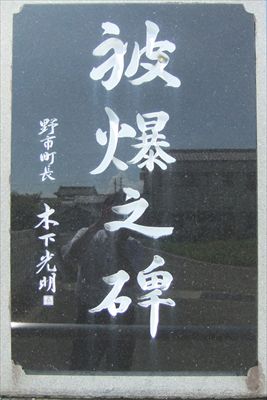 被爆之碑
野市町長
木下光明